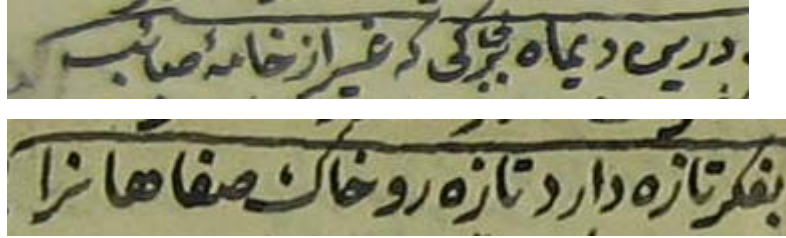 درین دیماه بیبرگی که غیر از خامهٔ صائب
بفکر تازه دارد تازه رو خاک صفاهانرا